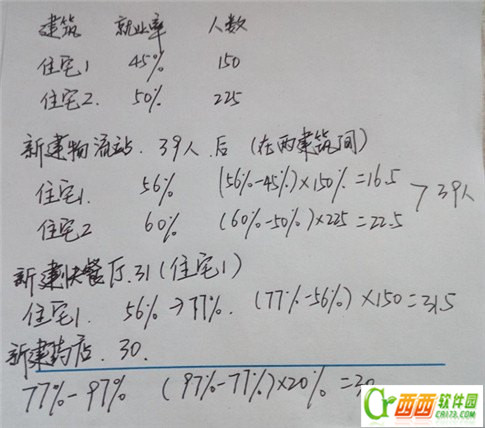 建筑 就业率 人数
住宅1 45% 150
住宅2. 50% 225
新建物流站. 39人.后 (在两建筑间)
住宅1. 56% (56%-45%)×150%=16.5
住宅2 60% (60%-50%)×225=22.5 >39人
新建快餐厅.31(住宅1)
住宅1. 56%→77%. (77%-56%)×150=31.5
新建药店. 30.
77%-97% (97%-77%)×20%=30
西西软件园
CR173.COM